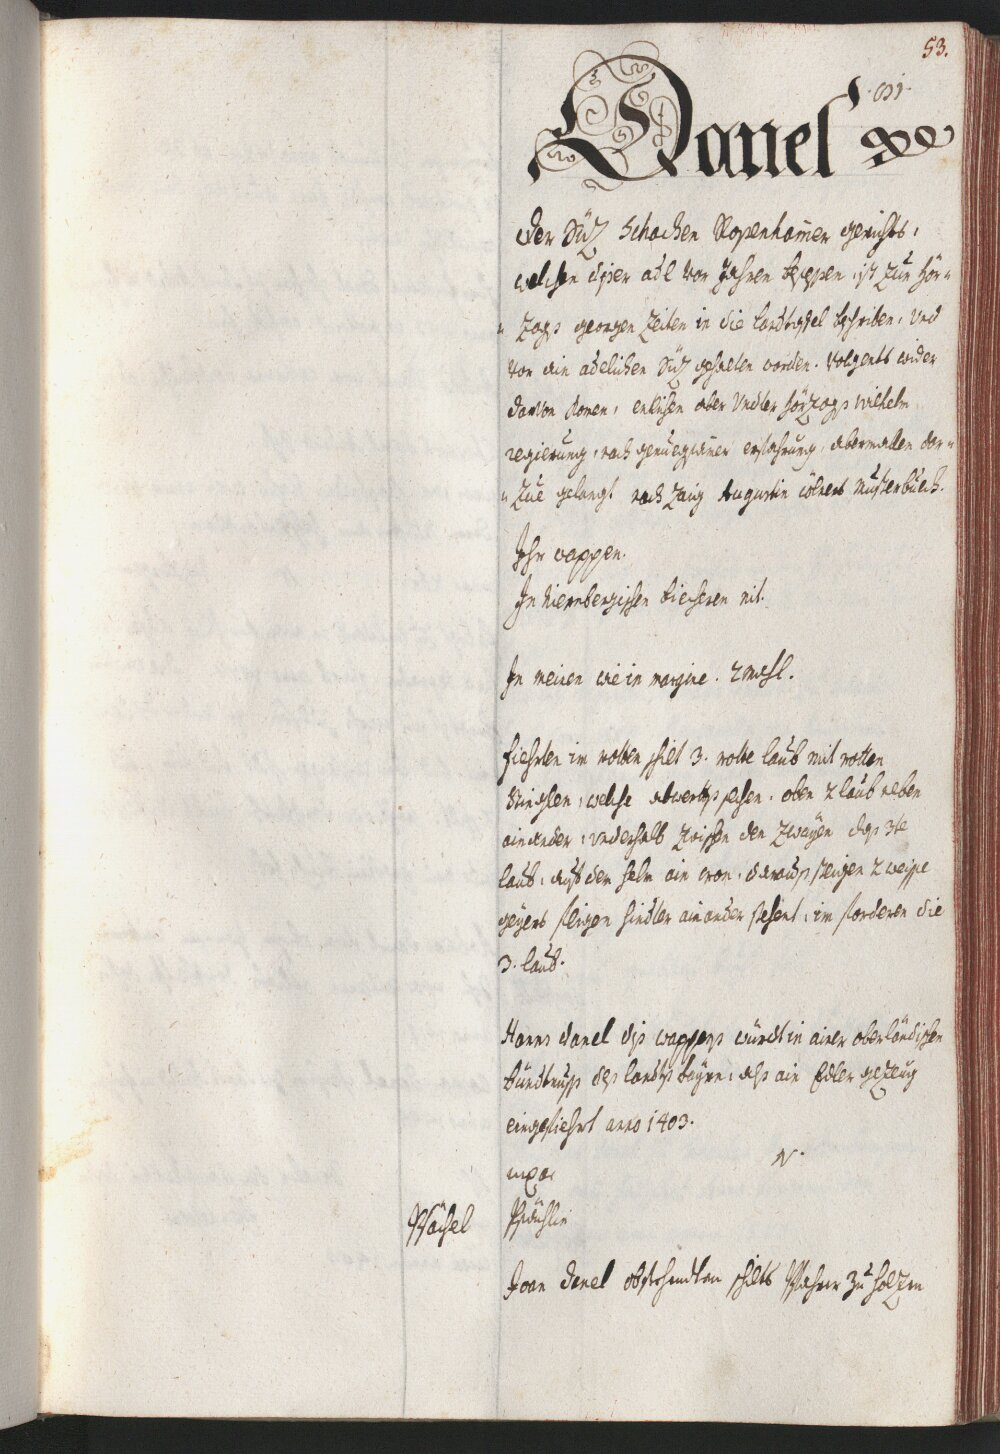 53.
Danel
der Süz Schachen Ropenhamer gerichts,
welchen diser adl vor Jahren besessen, ist zur hör=
= zogs georgen zeiten in die landtafel beschriben, und
vor ain adelichen Süz gehalten worden. volgents wider
darvon komen, entlichen aber under hörzogs wilhelm
regierung, nach genuegsamer erfahrung, abermallen dar=
= zue gelangt nach zaig Augustin cölners Musterbuech.
Ihr wappen.
In Niernbergischen biecheren nit.
In meinen wie in margine.
fiehrten im rotten schilt 3. rotte laub mit rotten
stinglen, welche abwerts sehen. oben 2 laub neben
ainander, underhalb zwischen den zwayen das 3te
laub, auf dem helm ain cron, daraus steigen 2 weisse
geyers fligen hindter ainander stehent, im forderen die
3. laub.
Hanns danel dis wappens würdt in ainer oberländischen
bundtnuss des landts bayrn, als ain Edler gezeug
eingefiehrt anno 1403.
uxor N.
Pfächel
Joan danel obstehendten schilts Pfahrer zu holzen